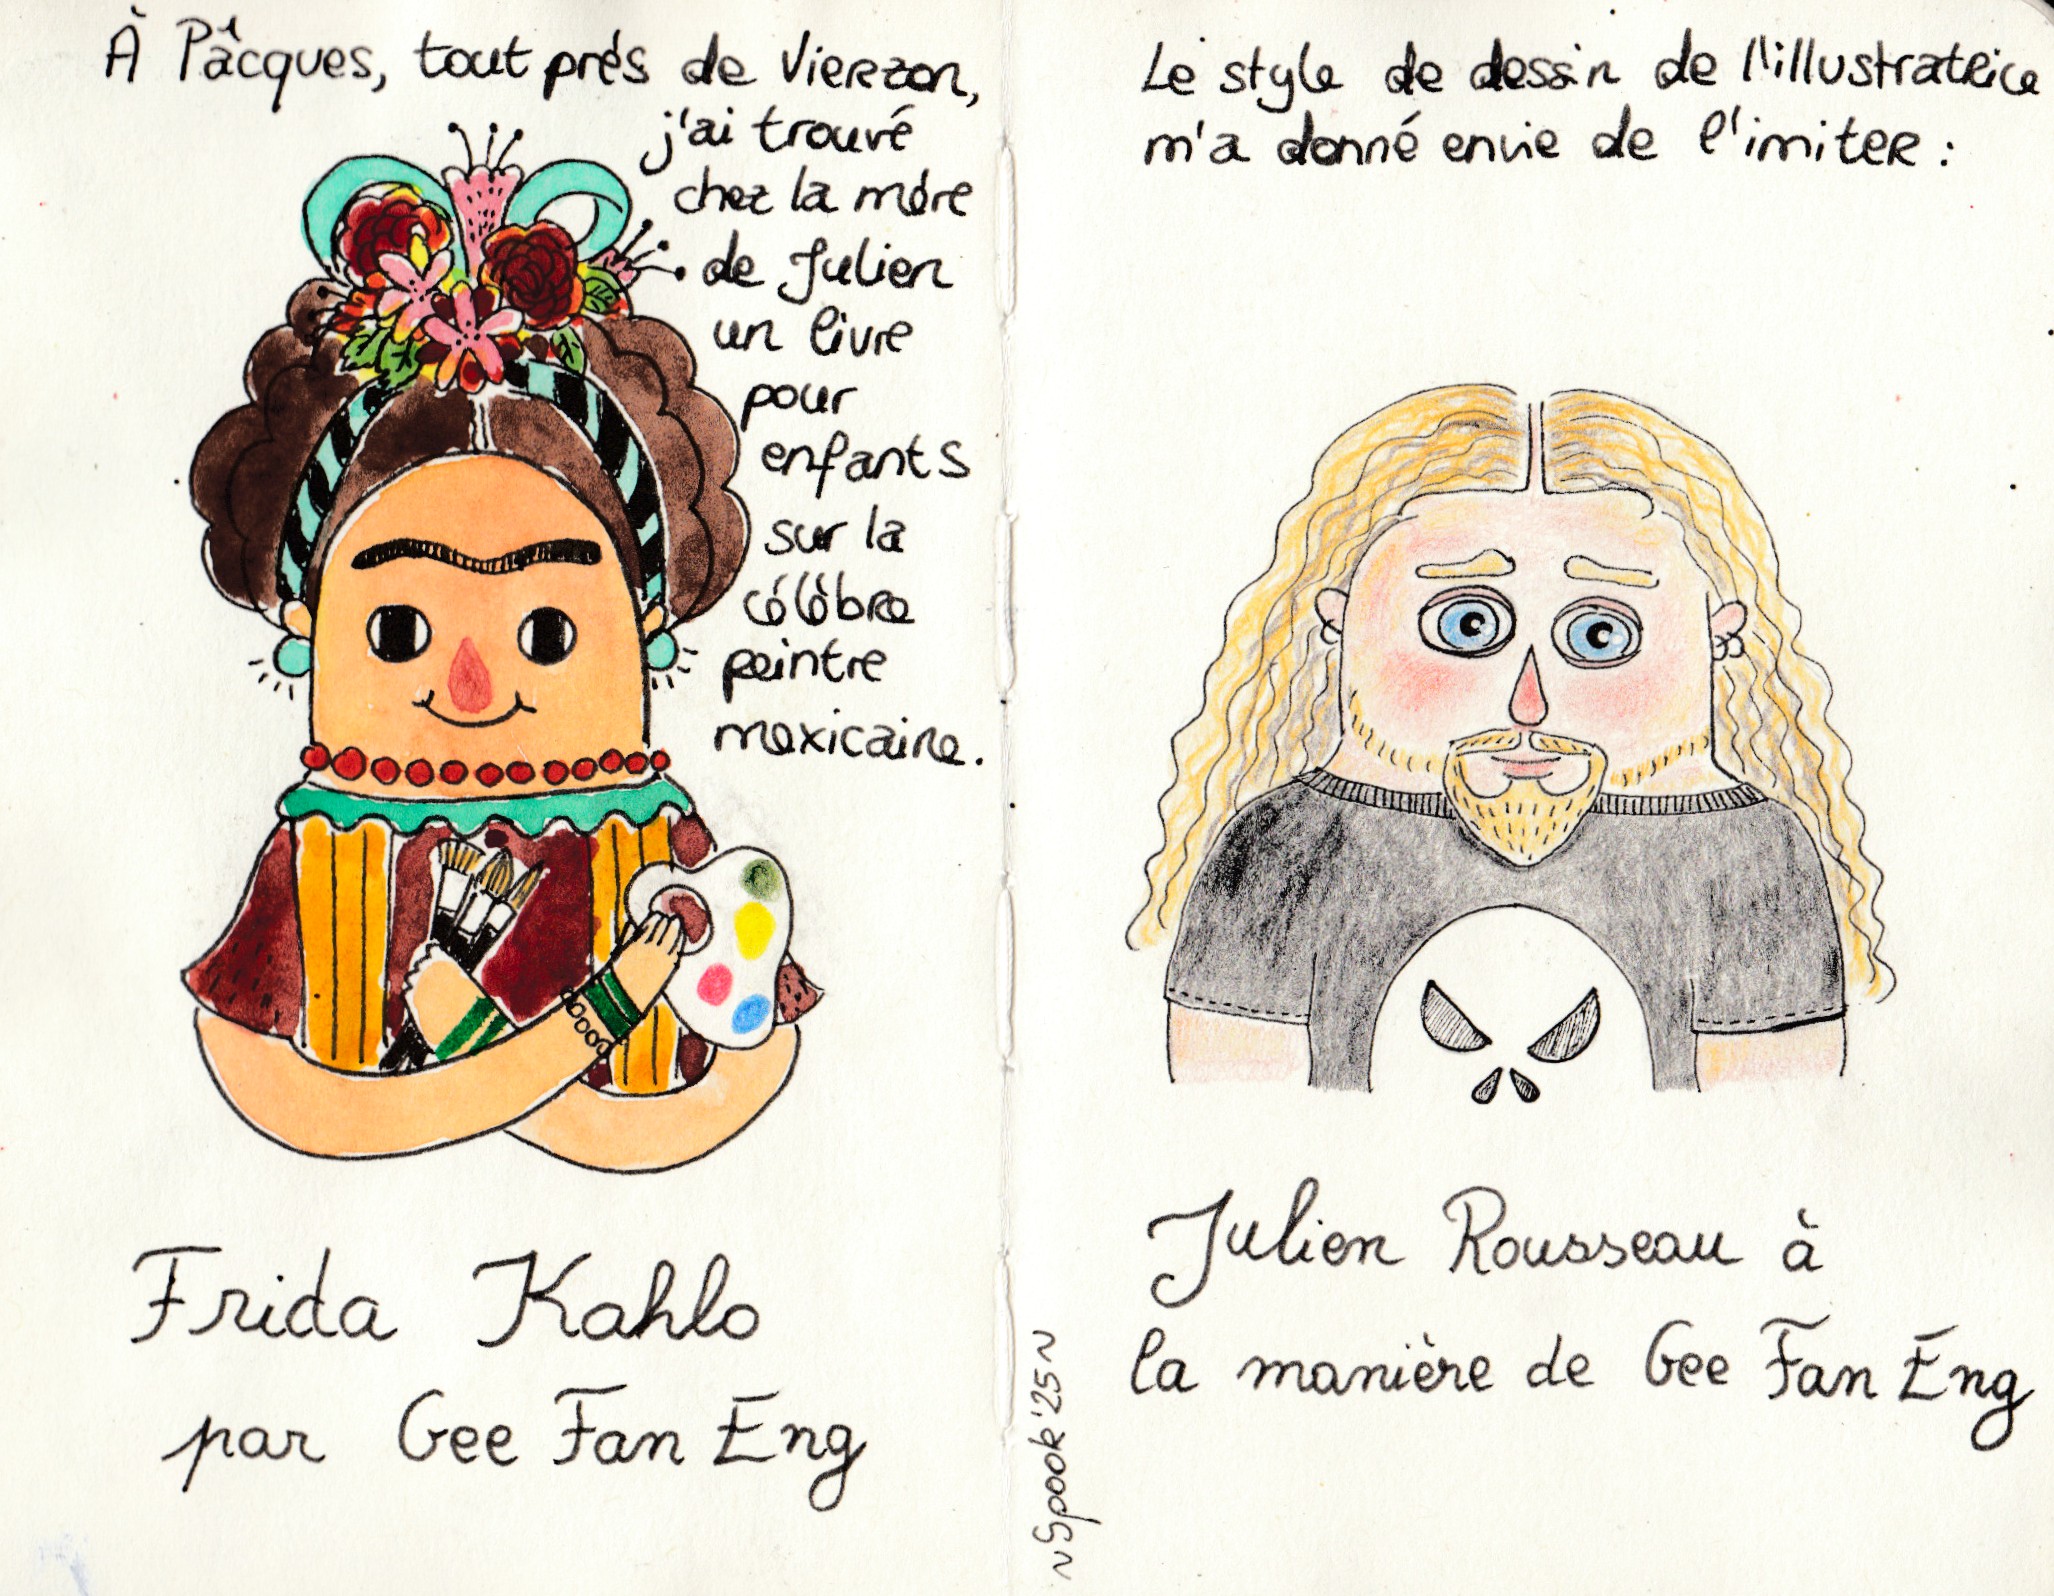 À Pâcques, tout près de Vierzon,
j'ai trouvé
chez la mère
de Julien
un livre
pour
enfants
sur la
célèbre
peintre
mexicaine.
Frida Kahlo
par Gee Fan Eng
Le style de dessin de l'illustratrice
m'a donné envie de l'imiter :
Julien Rousseau à
la manière de Gee Fan Eng
~Spook'25~